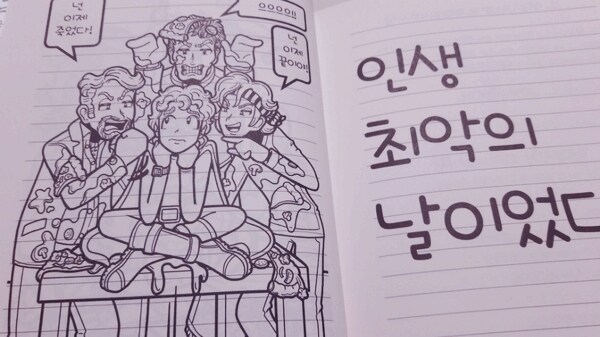 넌
이제
죽었다!
으으으!!
넌
이제
끝이야!
인생
최악의
날이었다